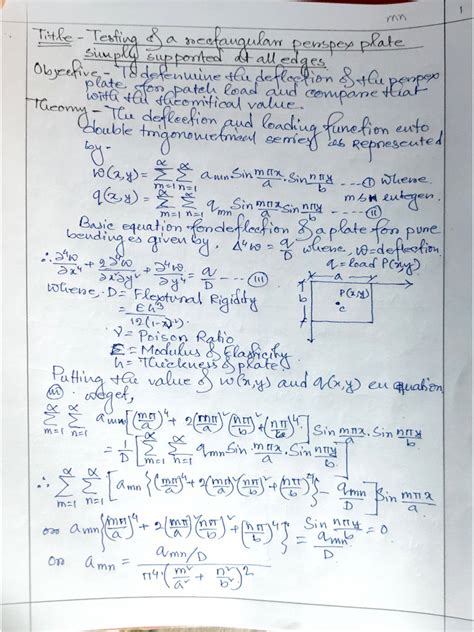 mn
1
Title - Testing of a rectangular perspex plate
simply supported at all edges.
Objective - To determine the deflection of the perspex
plate for patch load and compare that
with the theoritical value.
Theory - The deflection and loading function into
double trigonometrical series is represented
by -
w(x,y) = ∞∑m=1 ∞∑n=1 amn Sin mπx/a . Sin nπy/b ---- (I) where
m & n integer.
q(x,y) = ∞∑m=1 ∞∑n=1 qmn Sin mπx/a Sin nπy/b ---- (II)
Basic equation for deflection of a plate for pure
bending is given by, Δ⁴w = q/D where, w = deflection
q = load P(x,y)
∴ ∂⁴w/∂x⁴ + 2∂⁴w/∂x²∂y² + ∂⁴w/∂y⁴ = q/D ---- (III)
a
b
P(x,y)
c
where, D = Flextural Rigidity
= Eh³/12(1-ν²)
ν = Poison Ratio
E = Modulus of Elasticity
h = Thickness of plate
Putting the value of w(x,y) and q(x,y) in equation
(III) we get,
∞∑m=1 ∞∑n=1 amn[(mπ/a)⁴ + 2(mπ/a)²(nπ/b)² + (nπ/b)⁴] Sin mπx/a . Sin nπy/b
= 1/D [∞∑m=1 ∞∑n=1 qmn Sin mπx/a . Sin nπy/b]
∴ ∞∑m=1 ∞∑n=1 [amn{(mπ/a)⁴ + 2(mπ/a)²(nπ/b)² + (nπ/b)⁴} - qmn/D] Sin mπx/a
Sin nπy/b = 0
or amn{(mπ/a)⁴ + 2(mπ/a)²(nπ/b)² + (nπ/b)⁴} = qmn/D
or amn = qmn/D / π⁴.(m²/a² + n²/b²)²